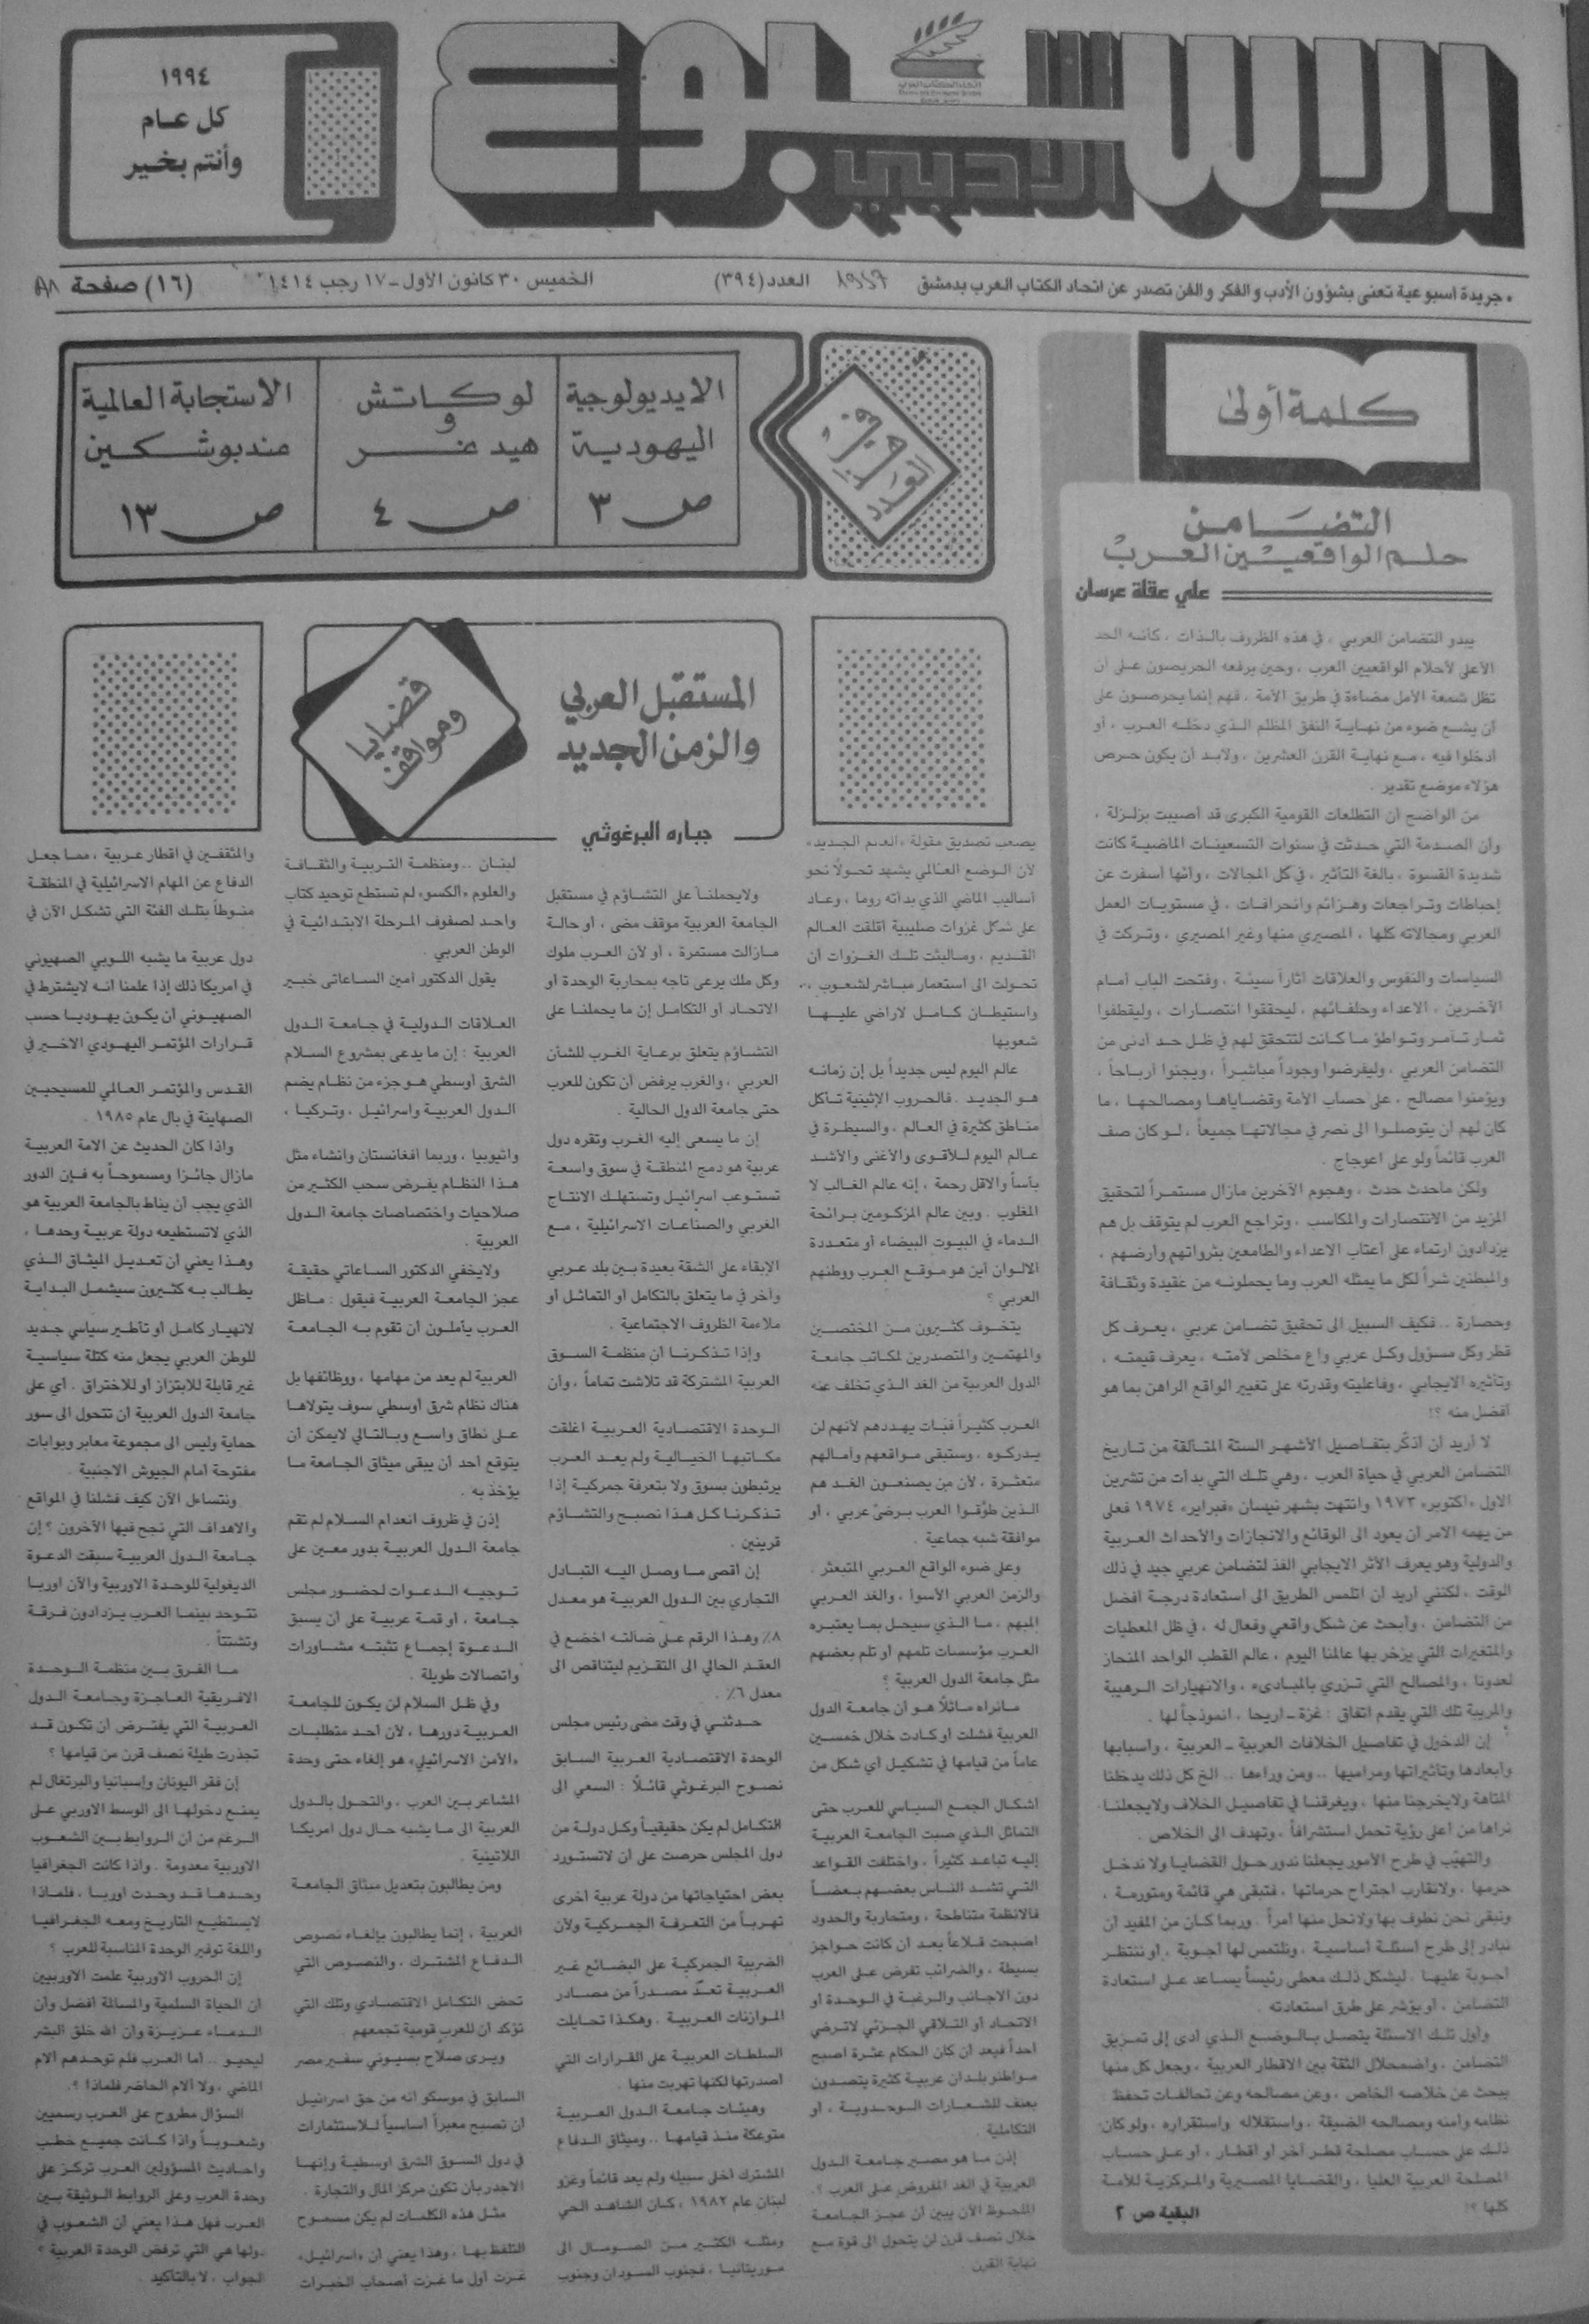 الأسبوع
الأدبي
اتحاد الكتاب العرب
١٩٩٤
كل عام
وأنتم بخير
• جريدة أسبوعية تعنى بشؤون الأدب والفكر والفن تصدر عن اتحاد الكتاب العرب بدمشق
العدد (٣٩٤)
الخميس ٣٠ كانون الأول - ١٧ رجب ١٤١٤
(١٦) صفحة
كلمة أولى
التضامن
حلم الواقعيين العرب
علي عقلة عرسان
يبدو التضامن العربي ، في هذه الظروف بالذات ، كأنه الحد
الأعلى لأحلام الواقعيين العرب ، وحين يرفعه الحريصون على أن
تظل شمعة الأمل مضاءة في طريق الأمة ، فهم إنما يحرصون على
أن يشع ضوء من نهاية النفق المظلم الذي دخله العرب ، أو
أدخلوا فيه ، مع نهاية القرن العشرين ، ولابد أن يكون حرص
هؤلاء موضع تقدير .
من الواضح أن التطلعات القومية الكبرى قد أصيبت بزلزلة ،
وأن الصدمة التي حدثت في سنوات التسعينات الماضية كانت
شديدة القسوة ، بالغة التأثير ، في كل المجالات ، وأنها أسفرت عن
إحباطات وتراجعات وهزائم وانحرافات ، في مستويات العمل
العربي ومجالاته كلها ، المصيري منها وغير المصيري ، وتركت في
السياسات والنفوس والعلاقات آثاراً سيئة ، وفتحت الباب أمام
الآخرين ، الأعداء وحلفائهم ، ليحققوا انتصارات ، وليقطفوا
ثمار تآمر وتواطؤ ما كانت لتتحقق لهم في ظل حد أدنى من
التضامن العربي ، وليفرضوا وجوداً مباشراً ، ويجنوا أرباحاً ،
ويؤمنوا مصالح ، على حساب الأمة وقضاياها ومصالحها ، ما
كان لهم أن يتوصلوا الى نصر في مجالاتها جميعاً ، لو كان صف
العرب قائماً ولو على اعوجاج .
ولكن ماحدث حدث ، وهجوم الآخرين مازال مستمراً لتحقيق
المزيد من الانتصارات والمكاسب ، وتراجع العرب لم يتوقف بل هم
يزدادون ارتماء على أعتاب الأعداء والطامعين بثرواتهم وأرضهم ،
والمبطنين شراً لكل ما يمثله العرب وما يحملونه من عقيدة وثقافة
وحضارة .. فكيف السبيل الى تحقيق تضامن عربي ، يعرف كل
قطر وكل مسؤول وكل عربي واع مخلص لأمته ، يعرف قيمته ،
وتأثيره الايجابي ، وفاعليته وقدرته على تغيير الواقع الراهن بما هو
أفضل منه ؟!
لا أريد أن أذكّر بتفاصيل الأشهر الستة المتألقة من تاريخ
التضامن العربي في حياة العرب ، وهي تلك التي بدأت من تشرين
الاول «أكتوبر» ١٩٧٣ وانتهت بشهر نيسان «فبراير» ١٩٧٤ فعلى
من يهمه الأمر أن يعود الى الوقائع والانجازات والأحداث العربية
والدولية وهو يعرف الأثر الايجابي الفذ لتضامن عربي جيد في ذلك
الوقت ، لكنني أريد أن اتلمس الطريق الى استعادة درجة أفضل
من التضامن ، وأبحث عن شكل واقعي وفعال له ، في ظل المعطيات
والمتغيرات التي يزخر بها عالمنا اليوم ، عالم القطب الواحد المنحاز
لعدونا ، والمصالح التي تزري بالمبادىء ، والانهيارات الرهيبة
والمريبة تلك التي يقدم اتفاق : غزة - اريحا ، انموذجاً لها .
إن الدخول في تفاصيل الخلافات العربية - العربية ، وأسبابها
وأبعادها وتأثيراتها ومراميها .. ومن وراءها .. الخ كل ذلك يدخلنا
المتاهة ولايخرجنا منها ، ويغرقنا في تفاصيل الخلاف ولايجعلنا
نراها من أعلى رؤية تحمل استشرافاً ، وتهدف الى الخلاص .
والتهيّب في طرح الأمور يجعلنا ندور حول القضايا ولا ندخل
حرمها ، ولانقارب اجتراح حرماتها ، فتبقى هي قائمة ومتورمة ،
ونبقى نحن نطوف بها ولانحل منها أمراً . وربما كان من المفيد أن
نبادر إلى طرح أسئلة أساسية ، ونلتمس لها أجوبة ، أو ننتظر
أجوبة عليها ، ليشكل ذلك معطى رئيساً يساعد على استعادة
التضامن ، أو يؤشر على طرق استعادته .
وأول تلك الاسئلة يتصل بالوضع الذي أدى إلى تمزيق
التضامن ، واضمحلال الثقة بين الأقطار العربية ، وجعل كل منها
يبحث عن خلاصه الخاص ، وعن مصالحه وعن تحالفات تحفظ
نظامه وأمنه ومصالحه الضيقة ، واستقلاله واستقراره ، ولو كان
ذلك على حساب مصلحة قطر آخر أو أقطار ، أو على حساب
المصلحة العربية العليا ، والقضايا المصيرية والمركزية للأمة
كلها ؟!
البقية ص ٢
في
هذا
العدد
الايديولوجية
اليهودية
ص ٣
لوكاتش
و
هيدغر
ص ٤
الاستجابة العالمية
عند بوشكين
ص ١٣
قضايا
ومواقف
المستقبل العربي
والزمن الجديد
جباره البرغوثي
يصعب تصديق مقولة «العالم الجديد»
لأن الوضع العالمي يشهد تحولاً نحو
أساليب الماضي الذي بدأته روما ، وعاد
على شكل غزوات صليبية أقلقت العالم
القديم ، ومالبثت تلك الغزوات أن
تحولت الى استعمار مباشر لشعوب ،
واستيطان كامل لأراضي عليها
شعوبها
عالم اليوم ليس جديداً بل إن زمانه
هو الجديد . فالحروب الإثينية تأكل
مناطق كثيرة في العالم ، والسيطرة في
عالم اليوم للأقوى والأغنى والأشد
بأساً والأقل رحمة ، إنه عالم الغالب لا
المغلوب . وبين عالم المزكومين برائحة
الدماء في البيوت البيضاء أو متعددة
الألوان أين هو موقع العرب ووطنهم
العربي ؟
يتخوف كثيرون من المختصين
والمهتمين والمتصدرين لمكاتب جامعة
الدول العربية من الغد الذي تخلف عنه
العرب كثيراً فبات يهددهم لأنهم لن
يدركوه ، وستبقى مواقعهم وأمالهم
متعثرة ، لأن من يصنعون الغد هم
الذين طوّقوا العرب برضى عربي ، أو
موافقة شبه جماعية .
وعلى ضوء الواقع العربي المتبعثر .
والزمن العربي الأسوأ ، والغد العربي
المبهم ، ما الذي سيحل بما يعتبره
العرب مؤسسات تلمهم أو تلم بعضهم
مثل جامعة الدول العربية ؟
مانراه ماثلاً هو أن جامعة الدول
العربية فشلت أو كادت خلال خمسين
عاماً من قيامها في تشكيل أي شكل من
أشكال الجمع السياسي للعرب حتى
التماثل الذي صبت الجامعة العربية
إليه تباعد كثيراً ، واختلفت القواعد
التي تشد الناس بعضهم بعضاً
فالأنظمة متناطحة ، ومتحاربة والحدود
أصبحت قلاعاً بعد أن كانت حواجز
بسيطة ، والضرائب تفرض على العرب
دون الأجانب والرغبة في الوحدة أو
الاتحاد أو التلاقي الجزئي لاترضي
أحداً فبعد أن كان الحكام عثرة أصبح
مواطنو بلدان عربية كثيرة يتصدون
بعنف للشعارات الوحدوية ، أو
التكاملية .
إذن ما هو مصير جامعة الدول
العربية في الغد المفروض على العرب ؟
الملحوظ الآن يبين أن عجز الجامعة
خلال نصف قرن لن يتحول الى قوة مع
نهاية القرن
ولايحملنا على التشاؤم في مستقبل
الجامعة العربية موقف مضى ، أو حالة
مازالت مستمرة ، أو لأن العرب ملوك
وكل ملك يرعى تاجه بمحاربة الوحدة أو
الاتحاد أو التكامل إن ما يحملنا على
التشاؤم يتعلق برعاية الغرب للشأن
العربي ، والغرب يرفض أن تكون للعرب
حتى جامعة الدول الحالية .
إن ما يسعى إليه الغرب وتقره دول
عربية هو دمج المنطقة في سوق واسعة
تستوعب اسرائيل وتستهلك الانتاج
الغربي والصناعات الاسرائيلية ، مع
الإبقاء على الشقة بعيدة بين بلد عربي
وآخر في ما يتعلق بالتكامل أو التماثل أو
ملاءمة الظروف الاجتماعية .
وإذا تذكرنا أن منظمة السوق
العربية المشتركة قد تلاشت تماماً ، وأن
الوحدة الاقتصادية العربية أغلقت
مكاتبها الخيالية ولم يعد العرب
يرتبطون بسوق ولا بتعرفة جمركية إذا
تذكرنا كل هذا نصبح والتشاؤم
قرينين .
إن أقصى ما وصل اليه التبادل
التجاري بين الدول العربية هو معدل
٨٪ وهذا الرقم على ضآلته أخضع في
العقد الحالي الى التقزيم ليتناقص الى
معدل ٦٪ .
حدثني في وقت مضى رئيس مجلس
الوحدة الاقتصادية العربية السابق
نصوح البرغوثي قائلاً : السعي الى
التكامل لم يكن حقيقياً وكل دولة من
دول المجلس حرصت على أن لاتستورد
بعض احتياجاتها من دولة عربية أخرى
تهرباً من التعرفة الجمركية ولأن
الضريبة الجمركية على البضائع غير
العربية تعدّ مصدراً من مصادر
الموازنات العربية . وهكذا تحايلت
السلطات العربية على القرارات التي
أصدرتها لكنها تهربت منها .
وهيئات جامعة الدول العربية
متوعكة منذ قيامها .. وميثاق الدفاع
المشترك أخلى سبيله ولم يعد قائماً وغزو
لبنان عام ١٩٨٢ ، كان الشاهد الحي
ومثله الكثير من الصومال الى
موريتانيا ، فجنوب السودان وجنوب
لبنان .. ومنظمة التربية والثقافة
والعلوم «الكسو» لم تستطع توحيد كتاب
واحد لصفوف المرحلة الابتدائية في
الوطن العربي .
يقول الدكتور أمين الساعاتي خبير
العلاقات الدولية في جامعة الدول
العربية : إن ما يدعى بمشروع السلام
الشرق أوسطي هو جزء من نظام يضم
الدول العربية واسرائيل ، وتركيا ،
واثيوبيا ، وربما أفغانستان وانشاء مثل
هذا النظام يفرض سحب الكثير من
صلاحيات واختصاصات جامعة الدول
العربية .
ولايخفي الدكتور الساعاتي حقيقة
عجز الجامعة العربية فيقول : ماظل
العرب يأملون أن تقوم به الجامعة
العربية لم يعد من مهامها ، ووظائفها بل
هناك نظام شرق أوسطي سوف يتولاها
على نطاق واسع وبالتالي لايمكن أن
يتوقع أحد أن يبقى ميثاق الجامعة ما
يؤخذ به .
إذن في ظروف انعدام السلام لم تقم
جامعة الدول العربية بدور معين على
توجيه الدعوات لحضور مجلس
جامعة ، أو قمة عربية على أن يسبق
الدعوة إجماع تثبته مشاورات
واتصالات طويلة .
وفي ظل السلام لن يكون للجامعة
العربية دورها ، لأن أحد متطلبات
«الأمن الاسرائيلي» هو إلغاء حتى وحدة
المشاعر بين العرب ، والتحول بالدول
العربية الى ما يشبه حال دول امريكا
اللاتينية .
ومن يطالبون بتعديل ميثاق الجامعة
العربية ، إنما يطالبون بإلغاء نصوص
الدفاع المشترك ، والنصوص التي
تحض التكامل الاقتصادي وتلك التي
تؤكد أن للعرب قومية تجمعهم .
ويرى صلاح بسيوني سفير مصر
السابق في موسكو أنه من حق اسرائيل
أن تصبح معبراً أساسياً للاستثمارات
في دول السوق الشرق أوسطية وإنها
الأجدر بأن تكون مركز المال والتجارة .
مثل هذه الكلمات لم يكن مسموح
التلفظ بها ، وهذا يعني أن «اسرائيل»
غزت أول ما غزت أصحاب الخبرات
والمثقفين في أقطار عربية ، مما جعل
الدفاع عن المهام الاسرائيلية في المنطقة
منوطاً بتلك الفئة التي تشكل الآن في
دول عربية ما يشبه اللوبي الصهيوني
في امريكا ذلك إذا علمنا أنه لايشترط في
الصهيوني أن يكون يهوديا حسب
قرارات المؤتمر اليهودي الأخير في
القدس والمؤتمر العالمي للمسيحيين
الصهاينة في بال عام ١٩٨٥ .
وإذا كان الحديث عن الأمة العربية
مازال جائزا ومسموحاً به فإن الدور
الذي يجب أن يناط بالجامعة العربية هو
الذي لاتستطيعه دولة عربية وحدها ،
وهذا يعني أن تعديل الميثاق الذي
يطالب به كثيرون سيشمل البداية
لانهيار كامل أو تأطير سياسي جديد
للوطن العربي يجعل منه كتلة سياسية
غير قابلة للابتزاز أو للاختراق . أي على
جامعة الدول العربية أن تتحول الى سور
حماية وليس الى مجموعة معابر وبوابات
مفتوحة أمام الجيوش الأجنبية .
ونتساءل الآن كيف فشلنا في المواقع
والأهداف التي نجح فيها الآخرون ؟ إن
جامعة الدول العربية سبقت الدعوة
الديغولية للوحدة الأوربية والآن اوربا
تتوحد بينما العرب يزدادون فرقة
وتشتتاً .
ما الفرق بين منظمة الوحدة
الافريقية العاجزة وجامعة الدول
العربية التي يفترض أن تكون قد
تجذرت طيلة نصف قرن من قيامها ؟
إن فقر اليونان وإسبانيا والبرتغال لم
يمنع دخولها الى الوسط الأوربي على
الرغم من أن الروابط بين الشعوب
الأوربية معدومة . وإذا كانت الجغرافيا
وحدها قد وحدت أوربا ، فلماذا
لايستطيع التاريخ ومعه الجغرافيا
واللغة توفير الوحدة المناسبة للعرب ؟
إن الحروب الأوربية علمت الأوربيين
أن الحياة السلمية والمسالمة أفضل وأن
الدماء عزيزة وأن الله خلق البشر
ليحيو .. أما العرب فلم توحدهم آلام
الماضي ، ولا آلام الحاضر فلماذا ؟.
السؤال مطروح على العرب رسميين
وشعوباً وإذا كانت جميع خطب
وأحاديث المسؤولين العرب تركز على
وحدة العرب وعلى الروابط الوثيقة بين
العرب فهل هذا يعني أن الشعوب في
دولها هي التي ترفض الوحدة العربية ؟
الجواب ، لا بالتأكيد .